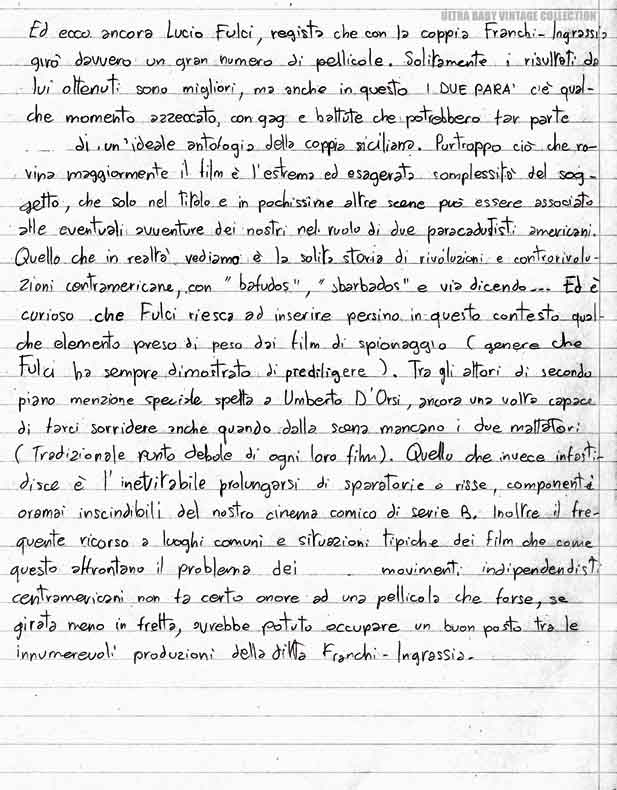 ULTRA BABY VINTAGE COLLECTION
Ed ecco ancora Lucio Fulci, regista che con la coppia Franchi-Ingrassia
girò davvero un gran numero di pellicole. Solitamente i risultati da
lui ottenuti sono migliori, ma anche in questo I DUE PARA' c'è qual-
che momento azzeccato, con gag e battute che potrebbero far parte
di un'ideale antologia della coppia siciliana. Purtroppo ciò che ro-
vina maggiormente il film è l'estrema ed esagerata complessità del sog-
getto, che solo nel titolo e in pochissime altre scene può essere associato
alle eventuali avventure dei nostri nel ruolo di due paracadutisti americani.
Quello che in realtà vediamo è la solita storia di rivoluzioni e controrivolu-
zioni centramericane, con "bafudos", "sbarbados" e via dicendo... Ed è
curioso che Fulci riesca ad inserire persino in questo contesto qual-
che elemento preso di peso dai film di spionaggio (genere che
Fulci ha sempre dimostrato di prediligere). Tra gli attori di secondo
piano menzione speciale spetta a Umberto D'Orsi, ancora una volta capace
di farci sorridere anche quando dalla scena mancano i due mattatori
(Tradizionale punto debole di ogni loro film). Quello che invece infasti-
disce è l'inevitabile prolungarsi di sparatorie e risse, componenti
oramai inscindibili del nostro cinema comico di serie B. Inoltre il fre-
quente ricorso a luoghi comuni e situazioni tipiche dei film che come
questo affrontano il problema dei movimenti indipendendisti
centramericani non fa certo onore ad una pellicola che forse, se
girata meno in fretta, avrebbe potuto occupare un buon posto tra le
innumerevoli produzioni della ditta Franchi-Ingrassia.